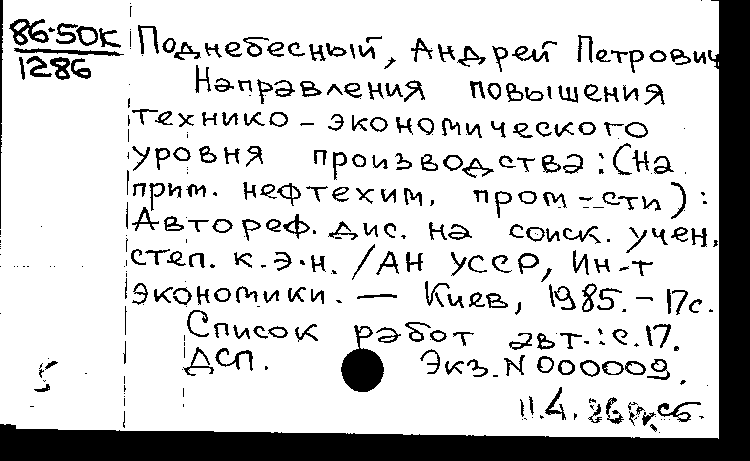 86-50К
1286
Поднебесный, Андрей Петрович
Направления повышения
технико-экономического
уровня производства: (На
прим. нефтехим. пром-сти):
Автореф. дис. на соиск. учен.
степ. к.э.н. /АН УССР, Ин-т
экономики. — Киев, 1985. - 17с.
Список работ авт.: с.17.
ДСП. Экз. N 000009.
5
11.4.86 сб.